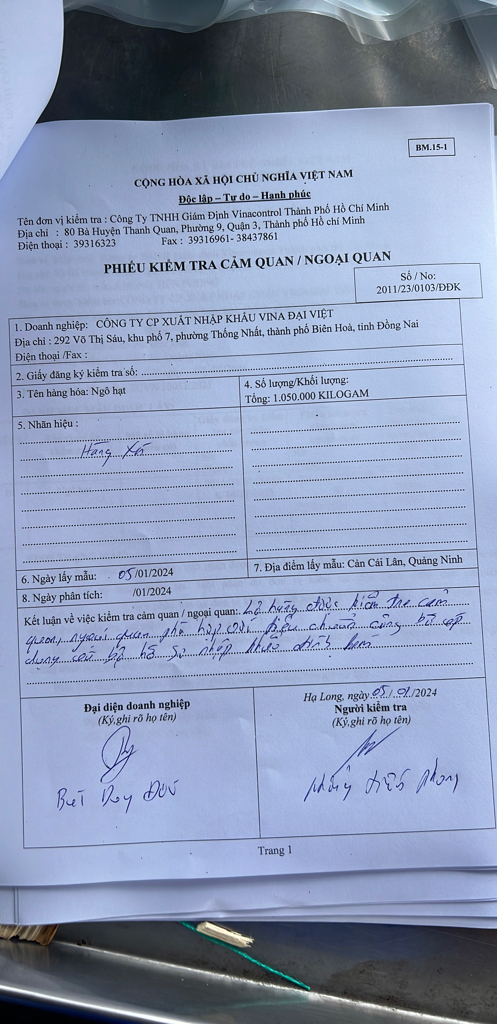 BM.15-1
CỘNG HÒA XÃ HỘI CHỦ NGHĨA VIỆT NAM
Độc lập – Tự do – Hạnh phúc
Tên đơn vị kiểm tra : Công Ty TNHH Giám Định Vinacontrol Thành Phố Hồ Chí Minh
Địa chỉ : 80 Bà Huyện Thanh Quan, Phường 9, Quận 3, Thành phố Hồ chí Minh
Điện thoại : 39316323 Fax : 39316961- 38437861
PHIẾU KIỂM TRA CẢM QUAN / NGOẠI QUAN
Số / No:
2011/23/0103/ĐĐK
1. Doanh nghiệp: CÔNG TY CP XUẤT NHẬP KHẨU VINA ĐẠI VIỆT
Địa chỉ : 292 Võ Thị Sáu, khu phố 7, phường Thống Nhất, thành phố Biên Hoà, tỉnh Đồng Nai
Điện thoại /Fax :
2. Giấy đăng ký kiểm tra số:
3. Tên hàng hóa: Ngô hạt
4. Số lượng/Khối lượng:
Tổng: 1.050.000 KILOGAM
5. Nhãn hiệu :
Hàng Xá
6. Ngày lấy mẫu: 05/01/2024
7. Địa điểm lấy mẫu: Cản Cái Lân, Quảng Ninh
8. Ngày phân tích: /01/2024
Kết luận về việc kiểm tra cảm quan / ngoại quan: Lô hàng được kiểm tra cảm
quan, ngoại quan phù hợp với tiêu chuẩn công bố áp
dụng và bộ hồ sơ nhập khẩu đính kèm
Hạ Long, ngày 05/01/2024
Đại diện doanh nghiệp
(Ký,ghi rõ họ tên)
Người kiểm tra
(Ký,ghi rõ họ tên)
Duy
Trang 1